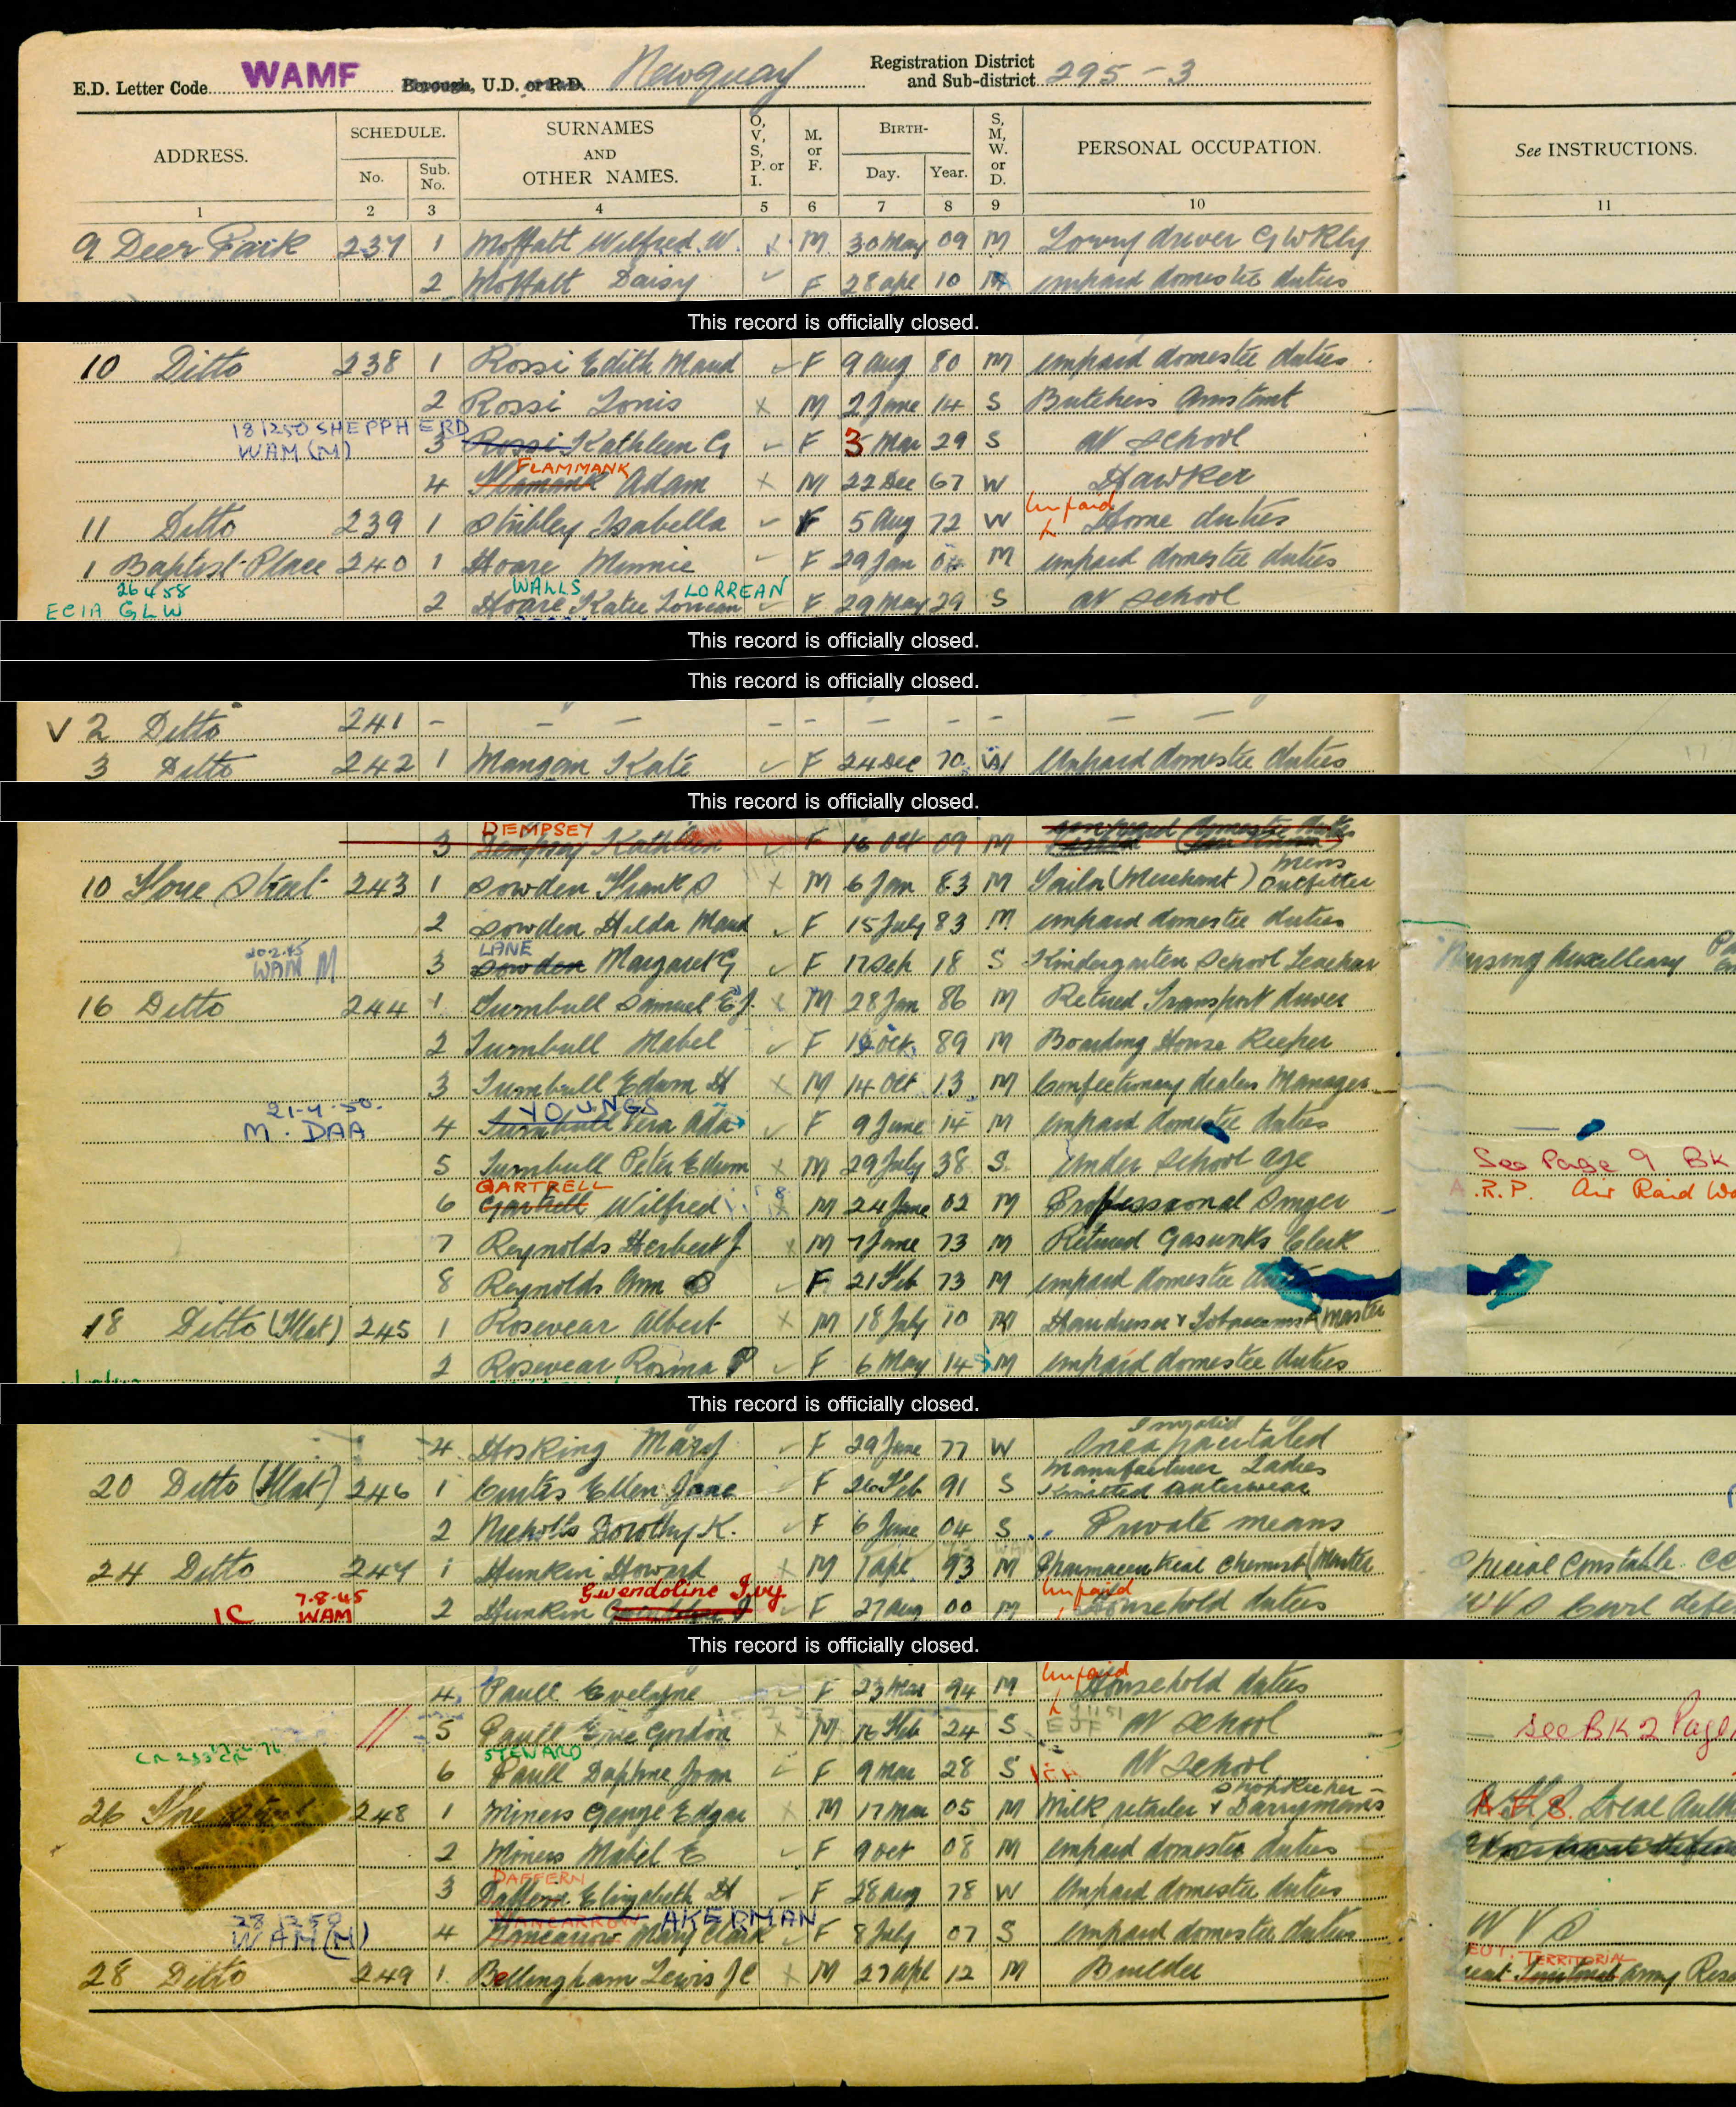 E.D. Letter Code WAMF Borough, U.D. or R.D. Newquay Registration District and Sub-district 295-3
ADDRESS. SCHEDULE. No. Sub. No. SURNAMES AND OTHER NAMES. O, V, S, P. or I. M. or F. BIRTH- Day. Year. S, M, W. or D. PERSONAL OCCUPATION. See INSTRUCTIONS.
1 2 3 4 5 6 7 8 9 10 11
9 Deer Park 237 1 Moffatt Wilfred. W. M 30 May 09 M Lorry driver G W Rly
2 Moffatt Daisy F 28 apl 10 M unpaid domestic duties
This record is officially closed.
10 Ditto 238 1 Rossi Edith Maud F 9 Aug 80 M unpaid domestic duties
2 Rossi Louis M 2 June 14 S Butchers Assistant
181250 SHEPPHERD
WAM (M) 3 Rossi Kathleen G F 3 Mar 29 S at school
FLAMMANK
4 Adam M 22 Dec 67 W Hawker
Unpaid
11 Ditto 239 1 Stribley Isabella F 5 Aug 72 W Home duties
1 Baptist Place 240 1 Hoare Minnie F 29 Jan 04 M unpaid domestic duties
26458 WALLS LORREAN
ECIA GLW 2 Hoare Katie F 29 May 29 S at school
This record is officially closed.
This record is officially closed.
V 2 Ditto 241 - - - - - - - - - -
3 Ditto 242 1 Mangan Kate F 24 Dec 70 W Unpaid domestic duties
This record is officially closed.
DEMPSEY
3 Dempsey Kathleen F 16 Oct 09 M
Mens
10 Fore Street 243 1 Sowden Frank S M 6 Jan 83 M Tailor (Merchant) Outfitter
2 Sowden Hilda Maud F 15 July 83 M unpaid domestic duties
20.2.45 LANE
WAM M 3 Sowden Margaret G F 17 Sep 18 S Kindergarten School Teacher Nursing Auxilleary
16 Ditto 244 1 Turnbull Samuel E J. M 28 Jan 86 M Retired Transport driver
2 Turnbull Mabel F Oct 89 M Boarding House Keeper
3 Turnbull Edwin H M 14 Oct 13 M Confectionary dealers Manager
21-4-50. YOUNGS
M. DAA 4 Turnbull Vera Ada F 9 June 14 M unpaid domestic duties
5 Turnbull Peter Edwin M 29 July 38 S. Under school age See Page 9 BK
GARTRELL
6 Gartrell Wilfred M 24 June 02 M Professional Singer A.R.P. Air Raid
7 Reynolds Herbert J M 7 June 73 M Retired Gasworks Clerk
8 Reynolds Ann F 21 Feb 73 M unpaid domestic duties
18 Ditto (Flat) 245 1 Rosevear Albert M 18 July 10 M Hairdresser & Tobacconist (Master
2 Rosevear Rosina P F 6 May 14 M unpaid domestic duties
This record is officially closed.
Invalid
4 Hosking Mary F 29 June 77 W Incapacitated
Manufacturer Ladies
20 Ditto (Flat) 246 1 Curtis Ellen Jane F 26 Feb 91 S Knitted outerwear
2 Nicholls Dorothy K. F 6 June 04 S Private means
24 Ditto 247 1 Hunkin Howard M 1 apl 93 M Pharmaceutical Chemist (Master Special Constable
7-8-45 Gwendoline Ivy Unpaid
IC WAM 2 Hunkin F 27 aug 00 M Household duties WVS Civil
This record is officially closed.
Unpaid
4 Paull Evelyne F 23 Mar 94 M Household duties
5 Paull Eric Gordon M 16 Feb 24 S at school See BK 2 Page
STEWARD
6 Paull Daphne Joan F 9 Mar 28 S at school
Shopkeeper -
26 Fore Street 248 1 Miners George Edgar M 17 Mar 05 M Milk retailer & Dairymans A.F.S. Local
2 Miners Mabel E F 9 Oct 08 M unpaid domestic duties
DAFFERN
3 Daffern Elizabeth H F 28 aug 78 W Unpaid domestic duties
281250 NANCARROW AKERMAN
WAM (M) 4 Nancarrow Mary Clark F 8 July 07 S unpaid domestic duties W V S
TERRITORIAL
28 Ditto 249 1. Bellingham Lewis J C M 27 apl 12 M Builder Army